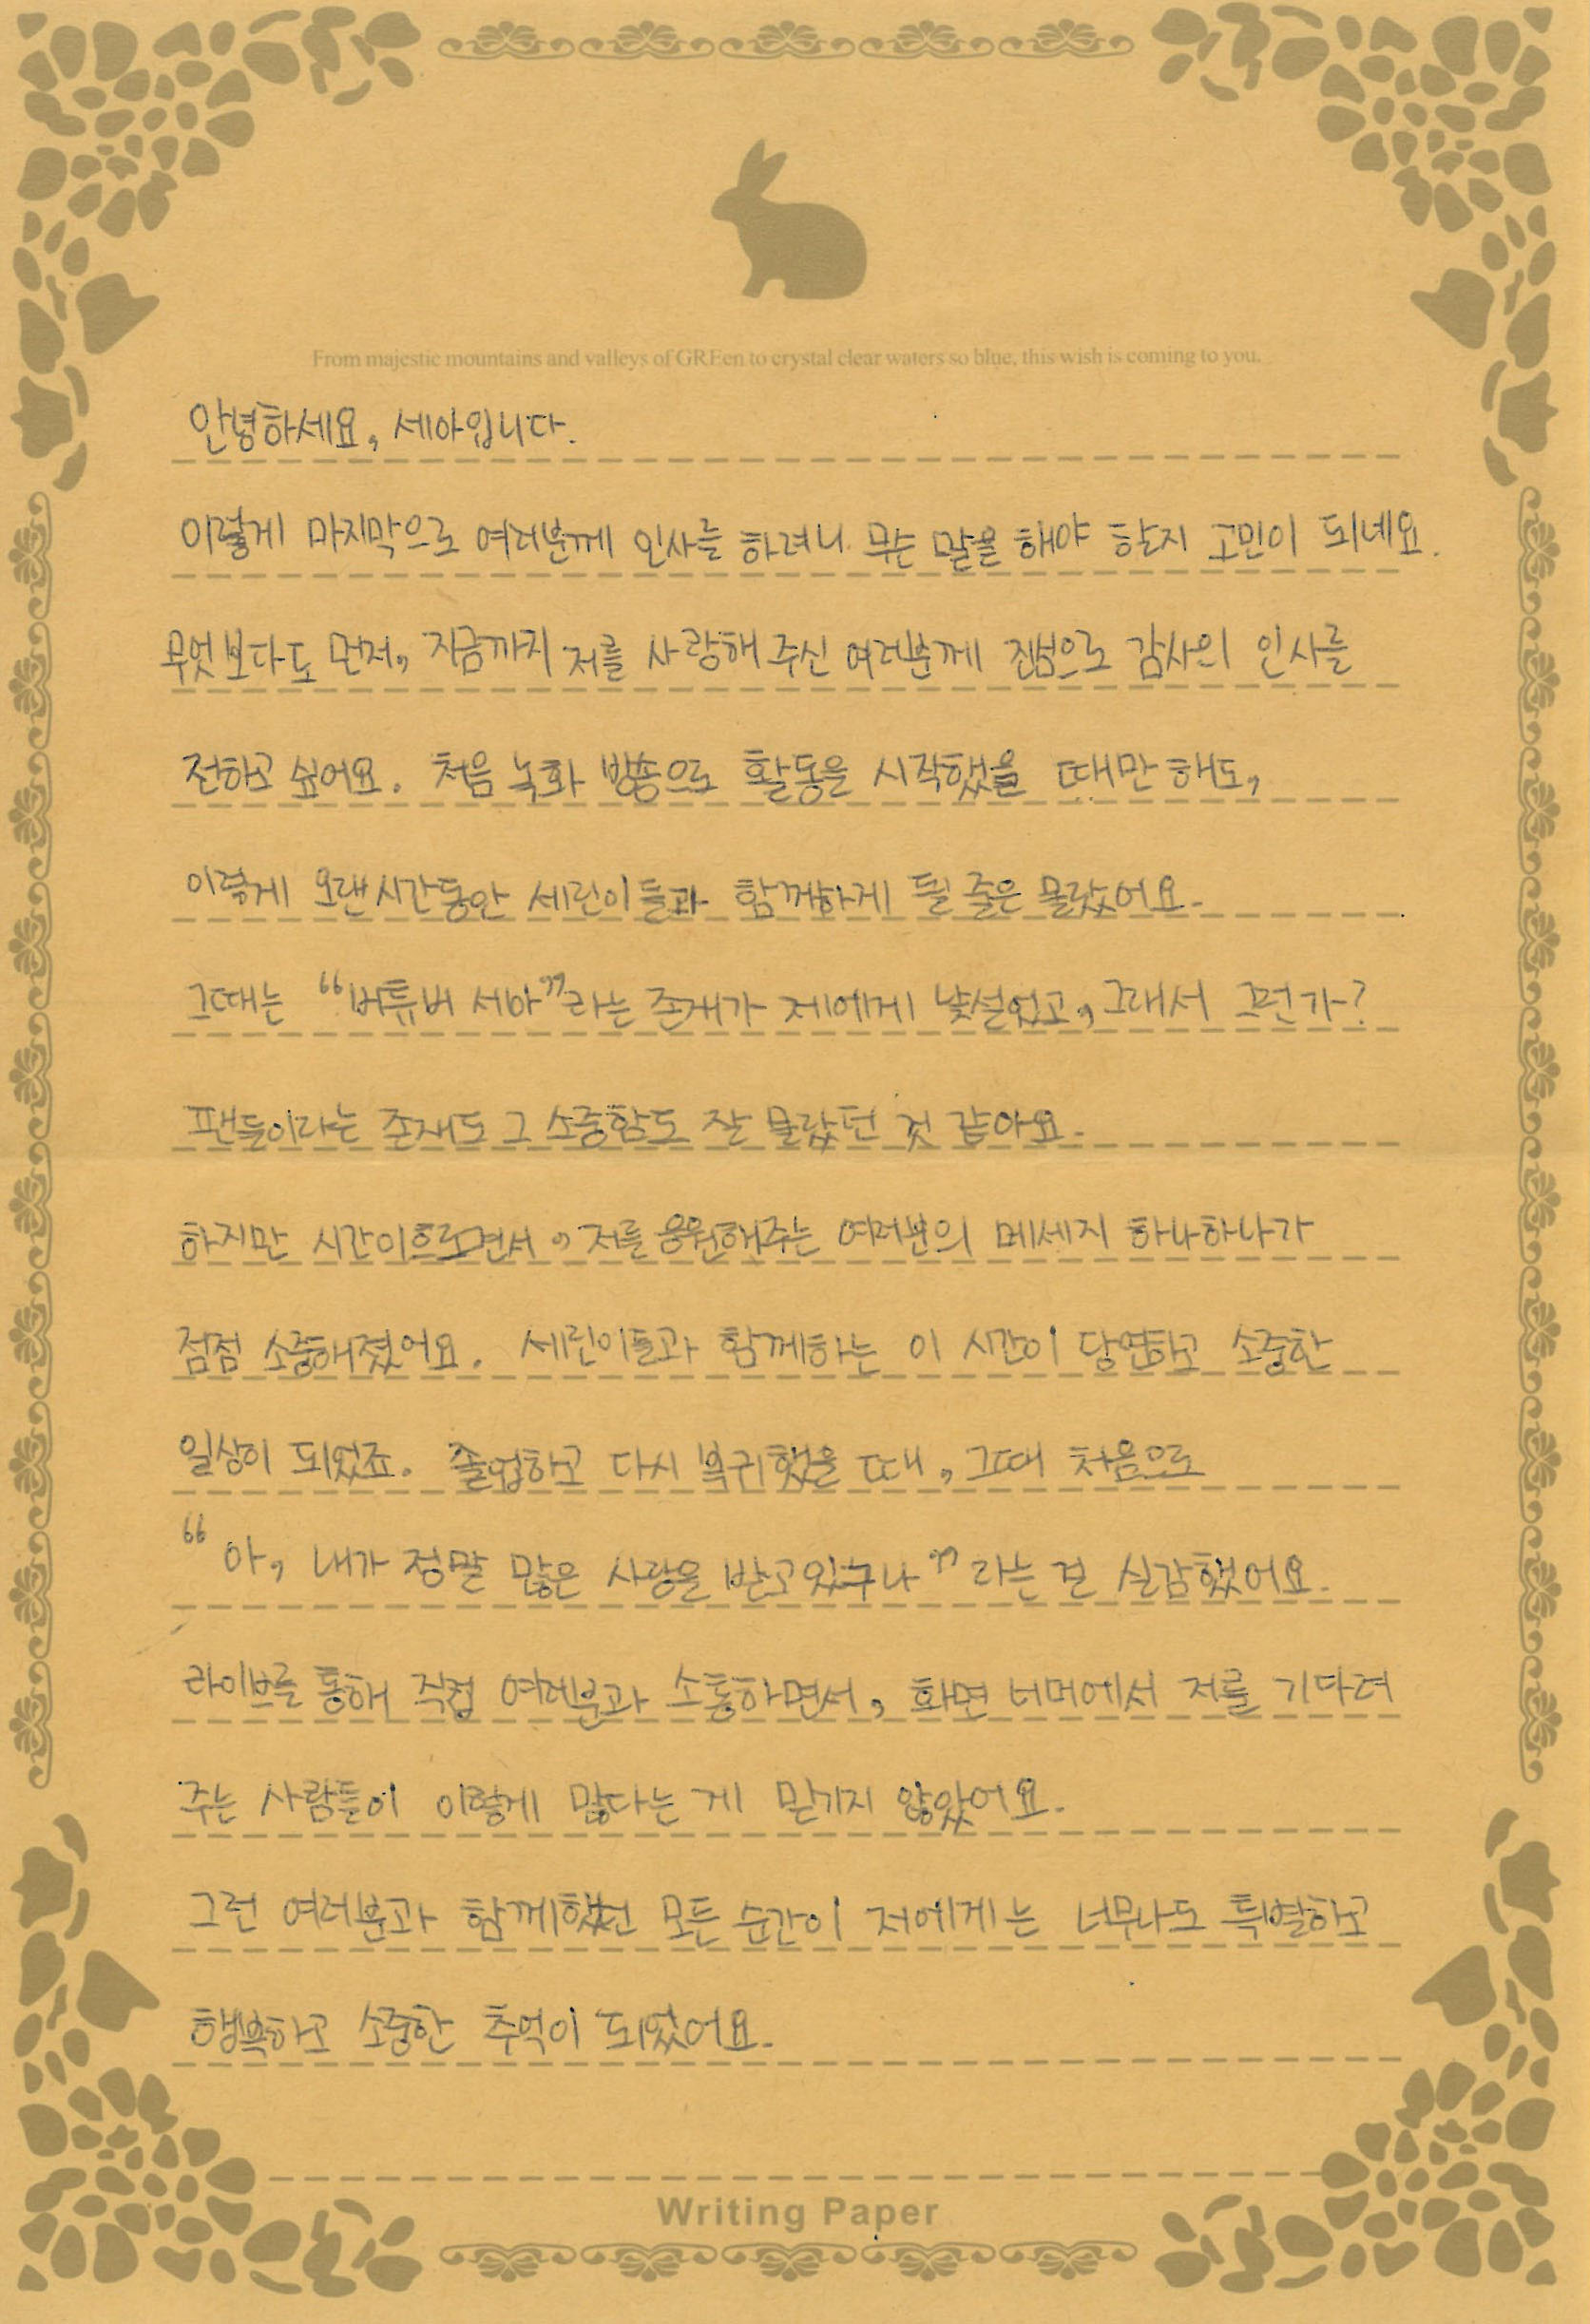 From majestic mountains and valleys of GREen to crystal clear waters so blue, this wish is coming to you.
안녕하세요, 세아입니다.
이렇게 마지막으로 여러분께 인사를 하려니 무슨 말을 해야 할지 고민이 되네요.
무엇보다도 먼저, 지금까지 저를 사랑해 주신 여러분께 진심으로 감사의 인사를
전하고 싶어요. 처음 녹화 방송으로 활동을 시작했을 때만 해도,
이렇게 오랜 시간동안 세린이들과 함께하게 될 줄은 몰랐어요.
그때는 “버튜버 세아”라는 존재가 저에게 낯설었고, 그래서 그런가?
팬들이라는 존재도 그 소중함도 잘 몰랐던 것 같아요.
하지만 시간이흐르면서, 저를 응원해주는 여러분의 메세지 하나하나가
점점 소중해졌어요. 세린이들과 함께하는 이 시간이 당연하고 소중한
일상이 되었죠. 졸업하고 다시 복귀했을 때, 그때 처음으로
“아, 내가 정말 많은 사랑을 받고있구나”라는 걸 실감했어요.
라이브를 통해 직접 여러분과 소통하면서, 화면 너머에서 저를 기다려
주는 사람들이 이렇게 많다는 게 믿기지 않았어요.
그런 여러분과 함께했던 모든 순간이 저에게는 너무나도 특별하고
행복하고 소중한 추억이 되었어요.
Writing Paper